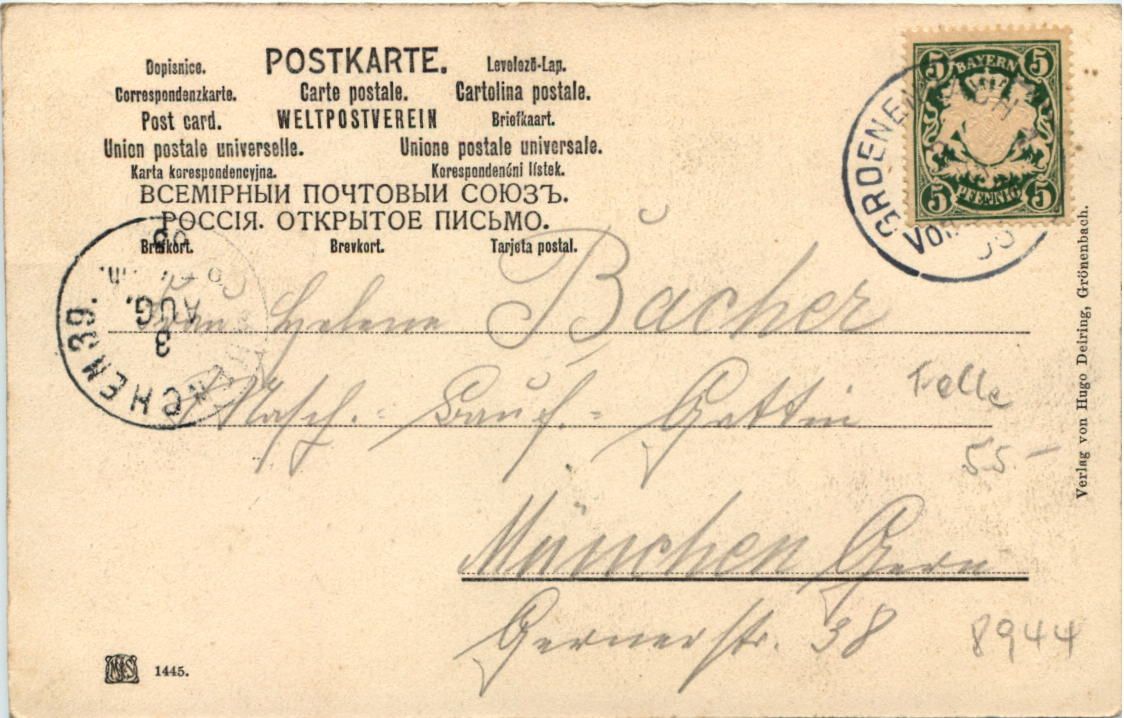 Dopisnice. POSTKARTE. Levelező-Lap.
Correspondenzkarte. Carte postale. Cartolina postale.
Post card. WELTPOSTVEREIN Briefkaart.
Union postale universelle. Unione postale universale.
Karta korespondencyjna. Korespondenční lístek.
ВСЕМІРНЫЙ ПОЧТОВЫЙ СОЮЗЪ.
РОССІЯ. ОТКРЫТОЕ ПИСЬМО.
Brefkort. Brevkort. Tarjeta postal.
5 BAYERN 5
5 PFENNIG 5
GROENENBACH
VOR
NCHEN 39.
3
AUG.
05
Frau Helene Bacher
Masch.- - Gattin
München Gern
Gernerstr. 38
55-
8944
Verlag von Hugo Delring, Grönenbach.
1445.